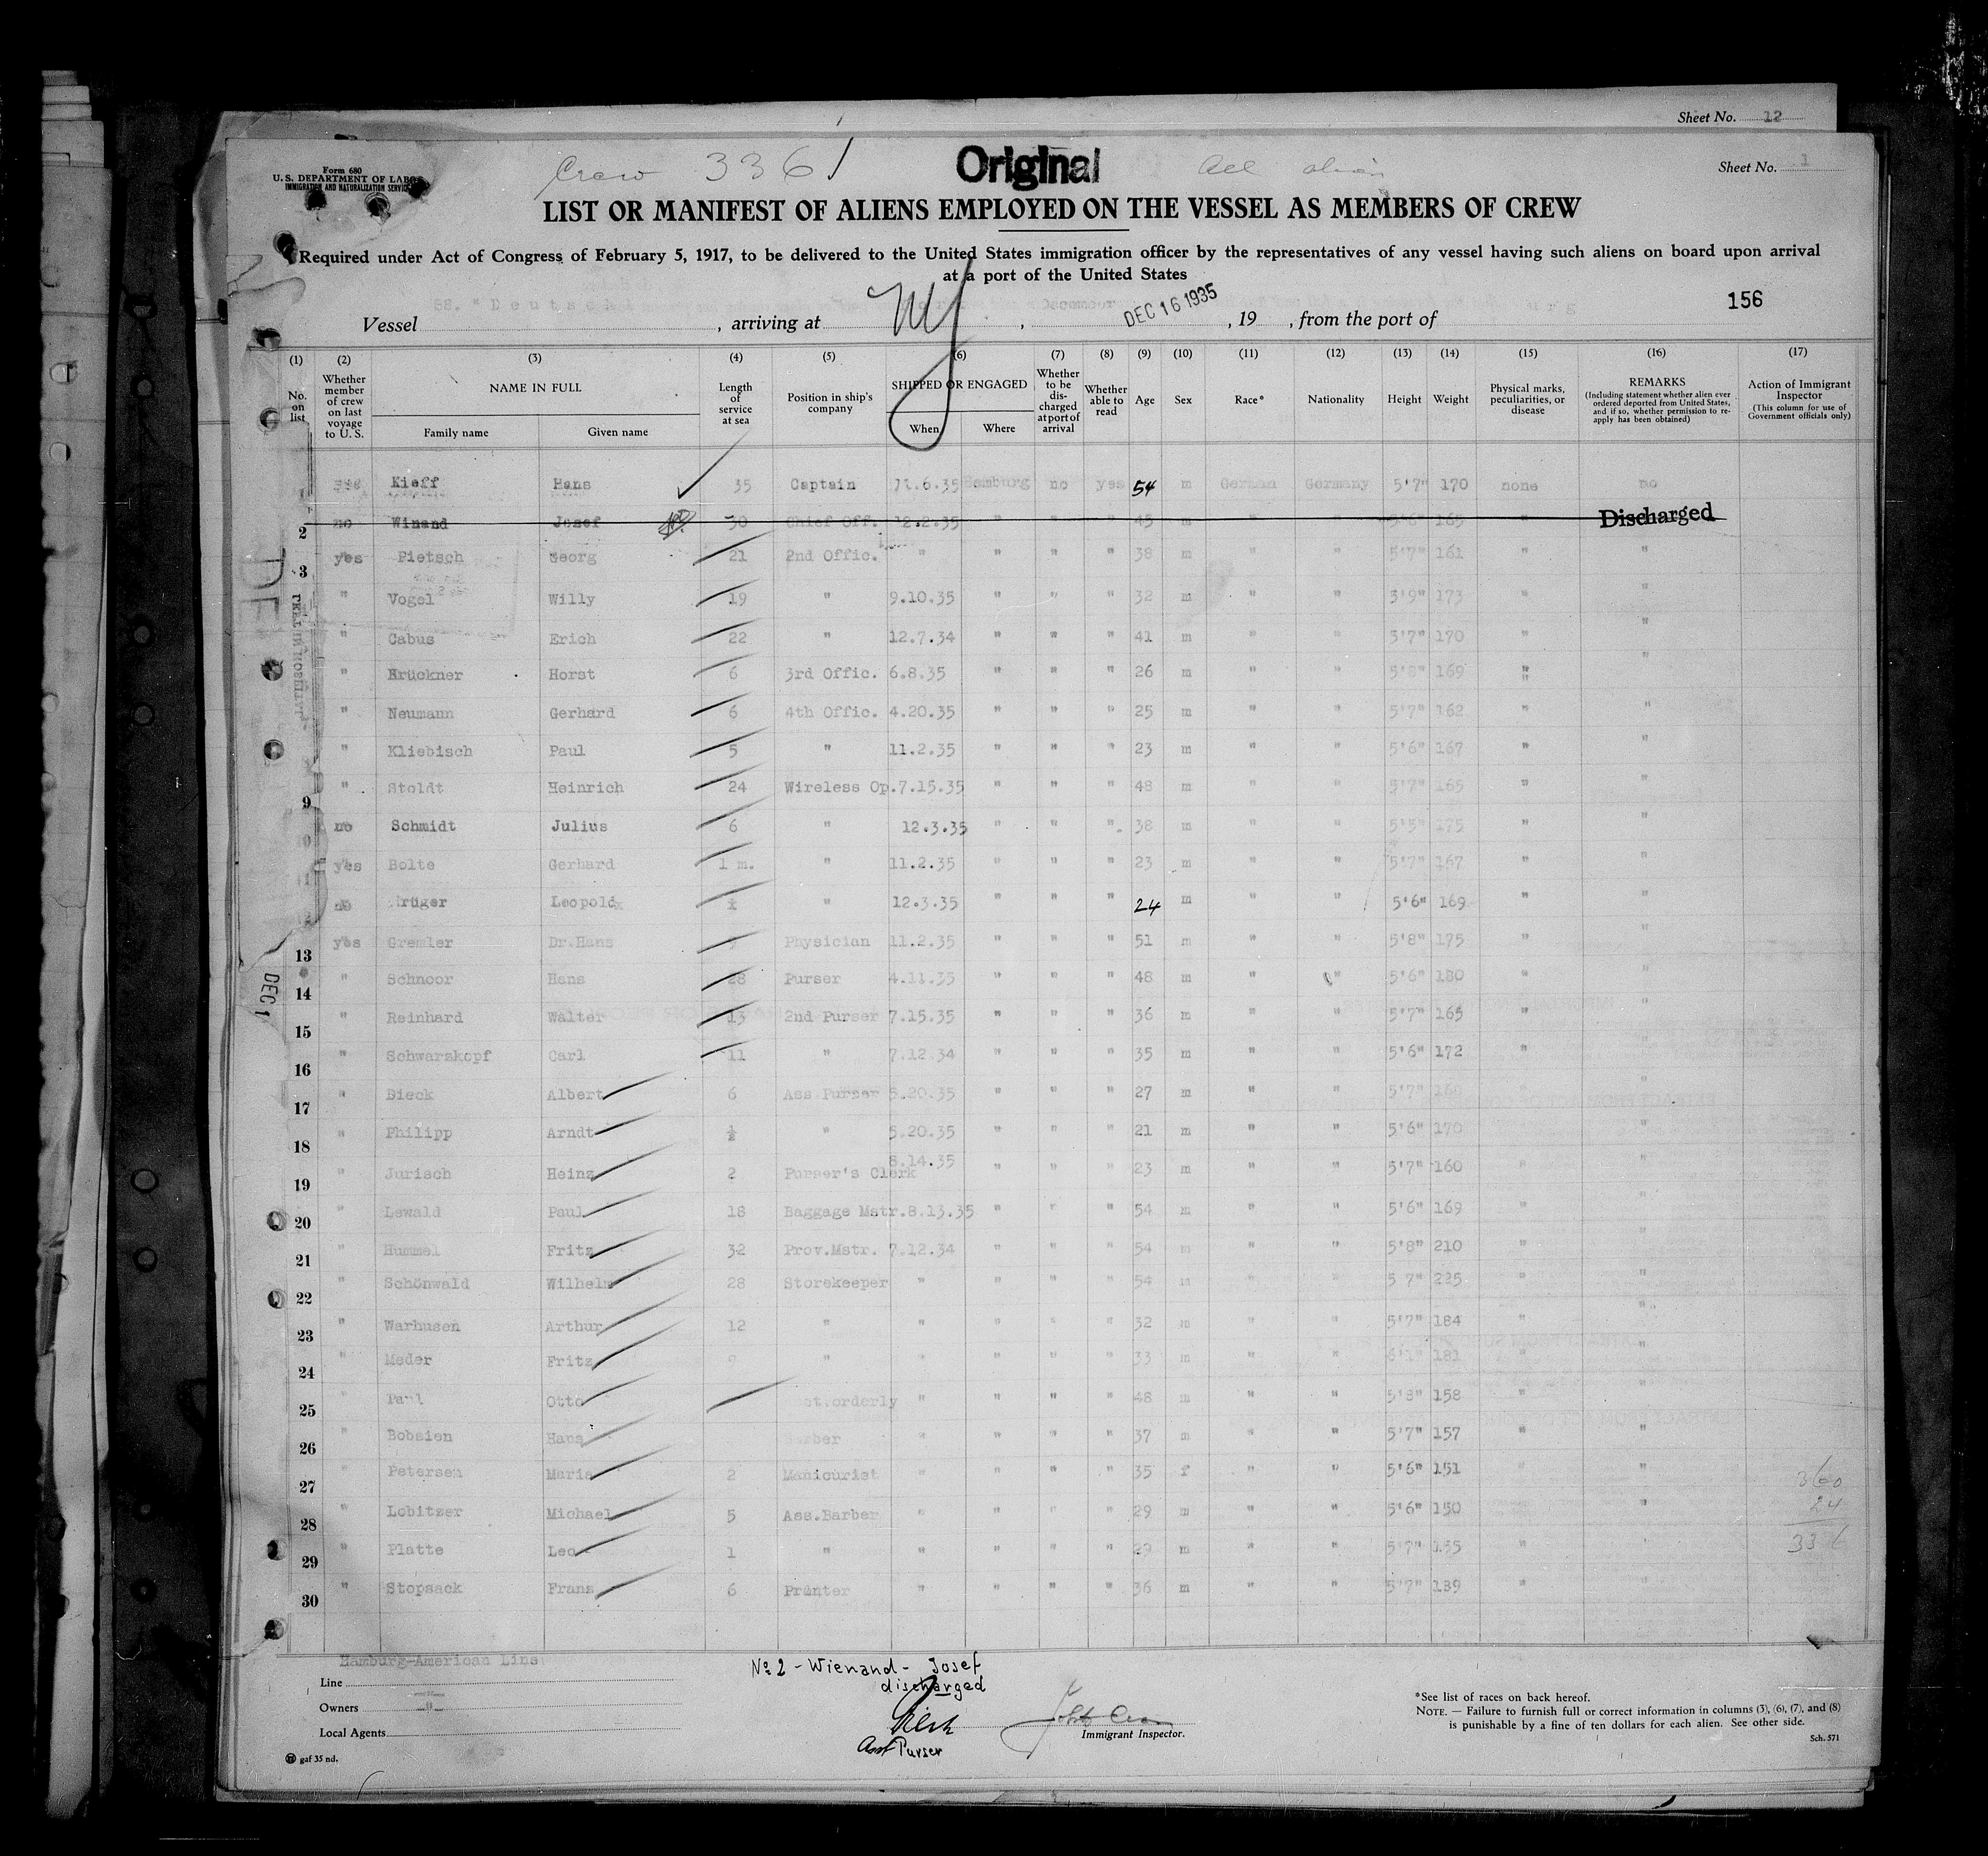 Sheet No. 12
Form 680
U. S. DEPARTMENT OF LABOR
IMMIGRATION AND NATURALIZATION SERVICE
Crew 336
Original
All alien
Sheet No. 1
LIST OR MANIFEST OF ALIENS EMPLOYED ON THE VESSEL AS MEMBERS OF CREW
Required under Act of Congress of February 5, 1917, to be delivered to the United States immigration officer by the representatives of any vessel having such aliens on board upon arrival
at a port of the United States
156
Vessel SS. "Deutschland", arriving at NY, DEC 16 1935, 19 , from the port of
(1) (2) (3) (4) (5) (6) (7) (8) (9) (10) (11) (12) (13) (14) (15) (16) (17)
No. on list
Whether member of crew on last voyage to U. S.
NAME IN FULL
Family name
Given name
Length of service at sea
Position in ship's company
SHIPPED OR ENGAGED
When
Where
Whether to be discharged at port of arrival
Whether able to read
Age
Sex
Race*
Nationality
Height
Weight
Physical marks, peculiarities, or disease
REMARKS
(Including statement whether alien ever ordered deported from United States, and if so, whether permission to reapply has been obtained)
Action of Immigrant Inspector
(This column for use of Government officials only)
1 yes Kieff Hans 35 Captain 11.6.35 Hamburg no yes 54 m German Germany 5'7" 170 none no
2 no Winand Josef 30 Chief Off. 12.2.35 " " " 45 m " " 5'6" 165 " Discharged
3 yes Pietsch Georg 21 2nd Offic. " " " " 38 m " " 5'7" 161 " "
" Vogel Willy 19 " 9.10.35 " " " 32 m " " 5'9" 173 " "
" Cabus Erich 22 " 12.7.34 " " " 41 m " " 5'7" 170 " "
" Brückner Horst 6 3rd Offic. 6.8.35 " " " 26 m " " 5'8" 169 " "
" Neumann Gerhard 6 4th Offic. 4.20.35 " " " 25 m " " 5'7" 162 " "
" Kliebisch Paul 5 " 11.2.35 " " " 23 m " " 5'6" 167 " "
9 " Stoldt Heinrich 24 Wireless Op. 7.15.35 " " " 48 m " " 5'7" 165 " "
0 no Schmidt Julius 6 " 12.3.35 " " " 38 m " " 5'5" 175 " "
1 yes Bolte Gerhard 1 m. " 11.2.35 " " " 23 m " " 5'7" 167 " "
no Krüger Leopold " 12.3.35 " " " 24 m " " 5'6" 169 " "
13 yes Gremler Dr.Hans Physician 11.2.35 " " " 51 m " " 5'8" 175 " "
14 " Schnoor Hans 28 Purser 4.11.35 " " " 48 m " " 5'6" 180 " "
15 " Reinhard Walter 13 2nd Purser 7.15.35 " " " 36 m " " 5'7" 165 " "
16 " Schwarzkopf Carl 11 " 7.12.34 " " " 35 m " " 5'6" 172 " "
17 " Dieck Albert 6 Ass.Purser 5.20.35 " " " 27 m " " 5'7" "
18 " Philipp Arndt ½ " 5.20.35 " " " 21 m " " 5'6" 170 " "
19 " Jurisch Heinz 2 Purser's Clerk 8.14.35 " " " 23 m " " 5'7" 160 " "
20 " Lewald Paul 18 Baggage Mstr. 8.13.35 " " " 54 m " " 5'6" 169 " "
21 " Hummel Fritz 32 Prov.Mstr. 7.12.34 " " " 54 m " " 5'8" 210 " "
22 " Schönwald Wilhelm 28 Storekeeper " " " " 54 m " " 5'7" 225 " "
23 " Warhusen Arthur 12 " " " " " 32 m " " 5'7" 184 " "
24 " Meder Fritz 9 " " " " " 33 m " " 6'1" 181 " "
25 " Paul Otto orderly " " " " 48 m " " 5'8" 158 " "
26 " Bobsien Hans Barber " " " " 37 m " " 5'7" 157 " "
27 " Petersen Marie 2 Manicurist " " " " 35 f " " 5'6" 151 " "
28 " Lobitzer Michael 5 Ass.Barber " " " " 29 m " " 5'6" 150 " "
29 " Platte Leo 1 " " " " " 29 m " " 5'7" 155 "
30 " Stopsack Franz 6 Printer " " " " 36 m " " 5'7" 139 " "
360
24
336
DEC 1
Hamburg-American Line
Line
Owners -"-
Local Agents
gaf 35 nd.
No 2 - Wienand - Josef
discharged
Asst Purser
Immigrant Inspector.
*See list of races on back hereof.
NOTE. — Failure to furnish full or correct information in columns (3), (6), (7), and (8)
is punishable by a fine of ten dollars for each alien. See other side.
Sch. 571